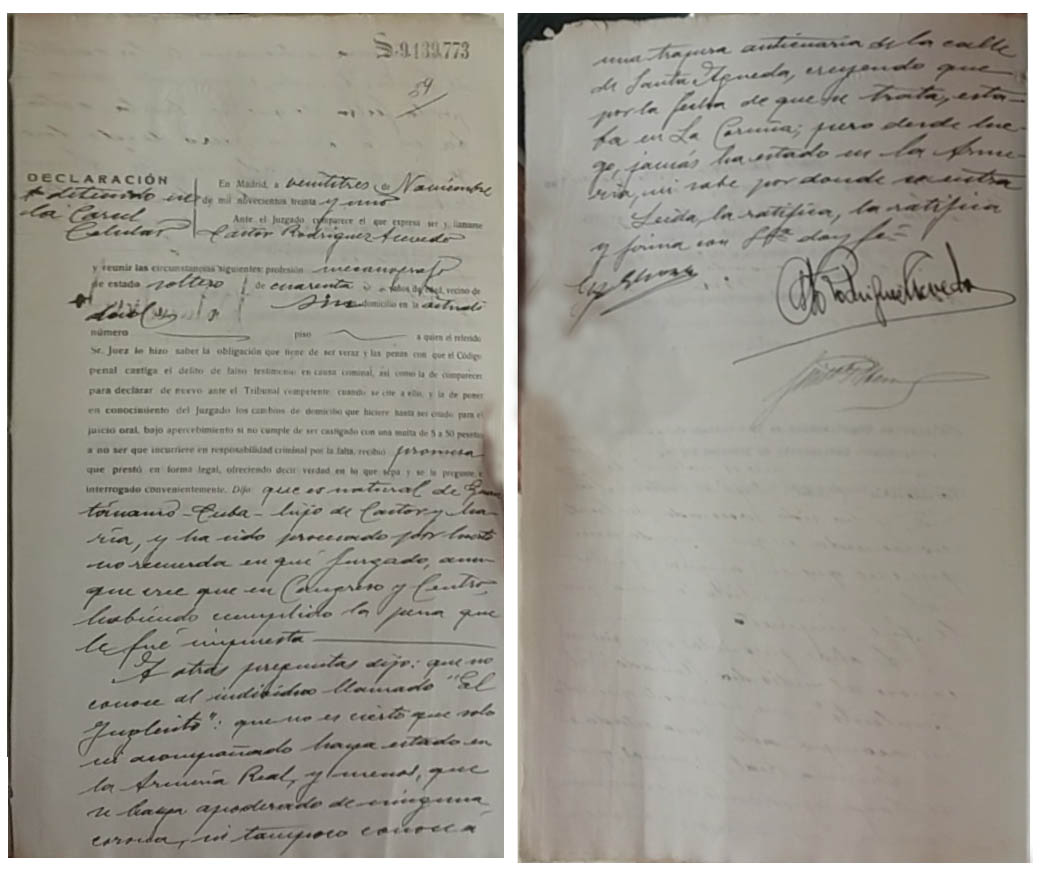 S.9.139.773
59
DECLARACIÓN
detenido en
la Carcel
Celular
En Madrid, a veintitres de Noviembre
de mil novecientos treinta y uno
Ante el Juzgado comparece el que expresa ser y llamarse
Castor Rodriguez Acevedo
y reunir las circunstancias siguientes: profesión mecanografo
de estado soltero de cuarenta años de edad, vecino de
sin domicilio en la actuali
dad
número piso a quien el referido
Sr. Juez lo hizo saber la obligación que tiene de ser veraz y las penas con que el Código
penal castiga el delito de falso testimonio en causa criminal, así como la de comparecer
para declarar de nuevo ante el Tribunal competente cuando se cite a ello, y la de poner
en conocimiento del Juzgado los cambios de domicilio que hiciere hasta ser citado para el
juicio oral, bajo apercebimiento si no cumple de ser castigado con una multa de 5 a 50 pesetas
a no ser que incurriere en resposabilidad criminal por la falta, recibió promesa
que prestó en forma legal, ofreciendo decir verdad en lo que sepa y se le pregunte, e
interrogado convenientemente. Dijo: que es natural de Guan
tánamo - Cuba - hijo de Castor y Ma-
ría, y ha sido procesado por hurto
no recuerda en qué Juzgado, aun
que cree que en Congreso y Centro,
habiendo cumplido la pena que
le fué impuesta
A otras preguntas dijo: que no
conoce al individuo llamado "El
": que no es cierto que solo
ni acompañado haya estado en
la Armería Real, y menos, que
se haya apoderado de ninguna
corona, ni tampoco conoce a
una trapera anticuaria de la calle
de Santa Agueda, creyendo que
por la fecha de que se trata, esta-
ba en La Coruña; pero desde lue-
go, jamás ha estado en la Arme-
ría, ni sabe por donde se entra
Leida, la ratifica, la ratifica
y firma con S.Sª doy fé=
Castor Rodriguez Acevedo